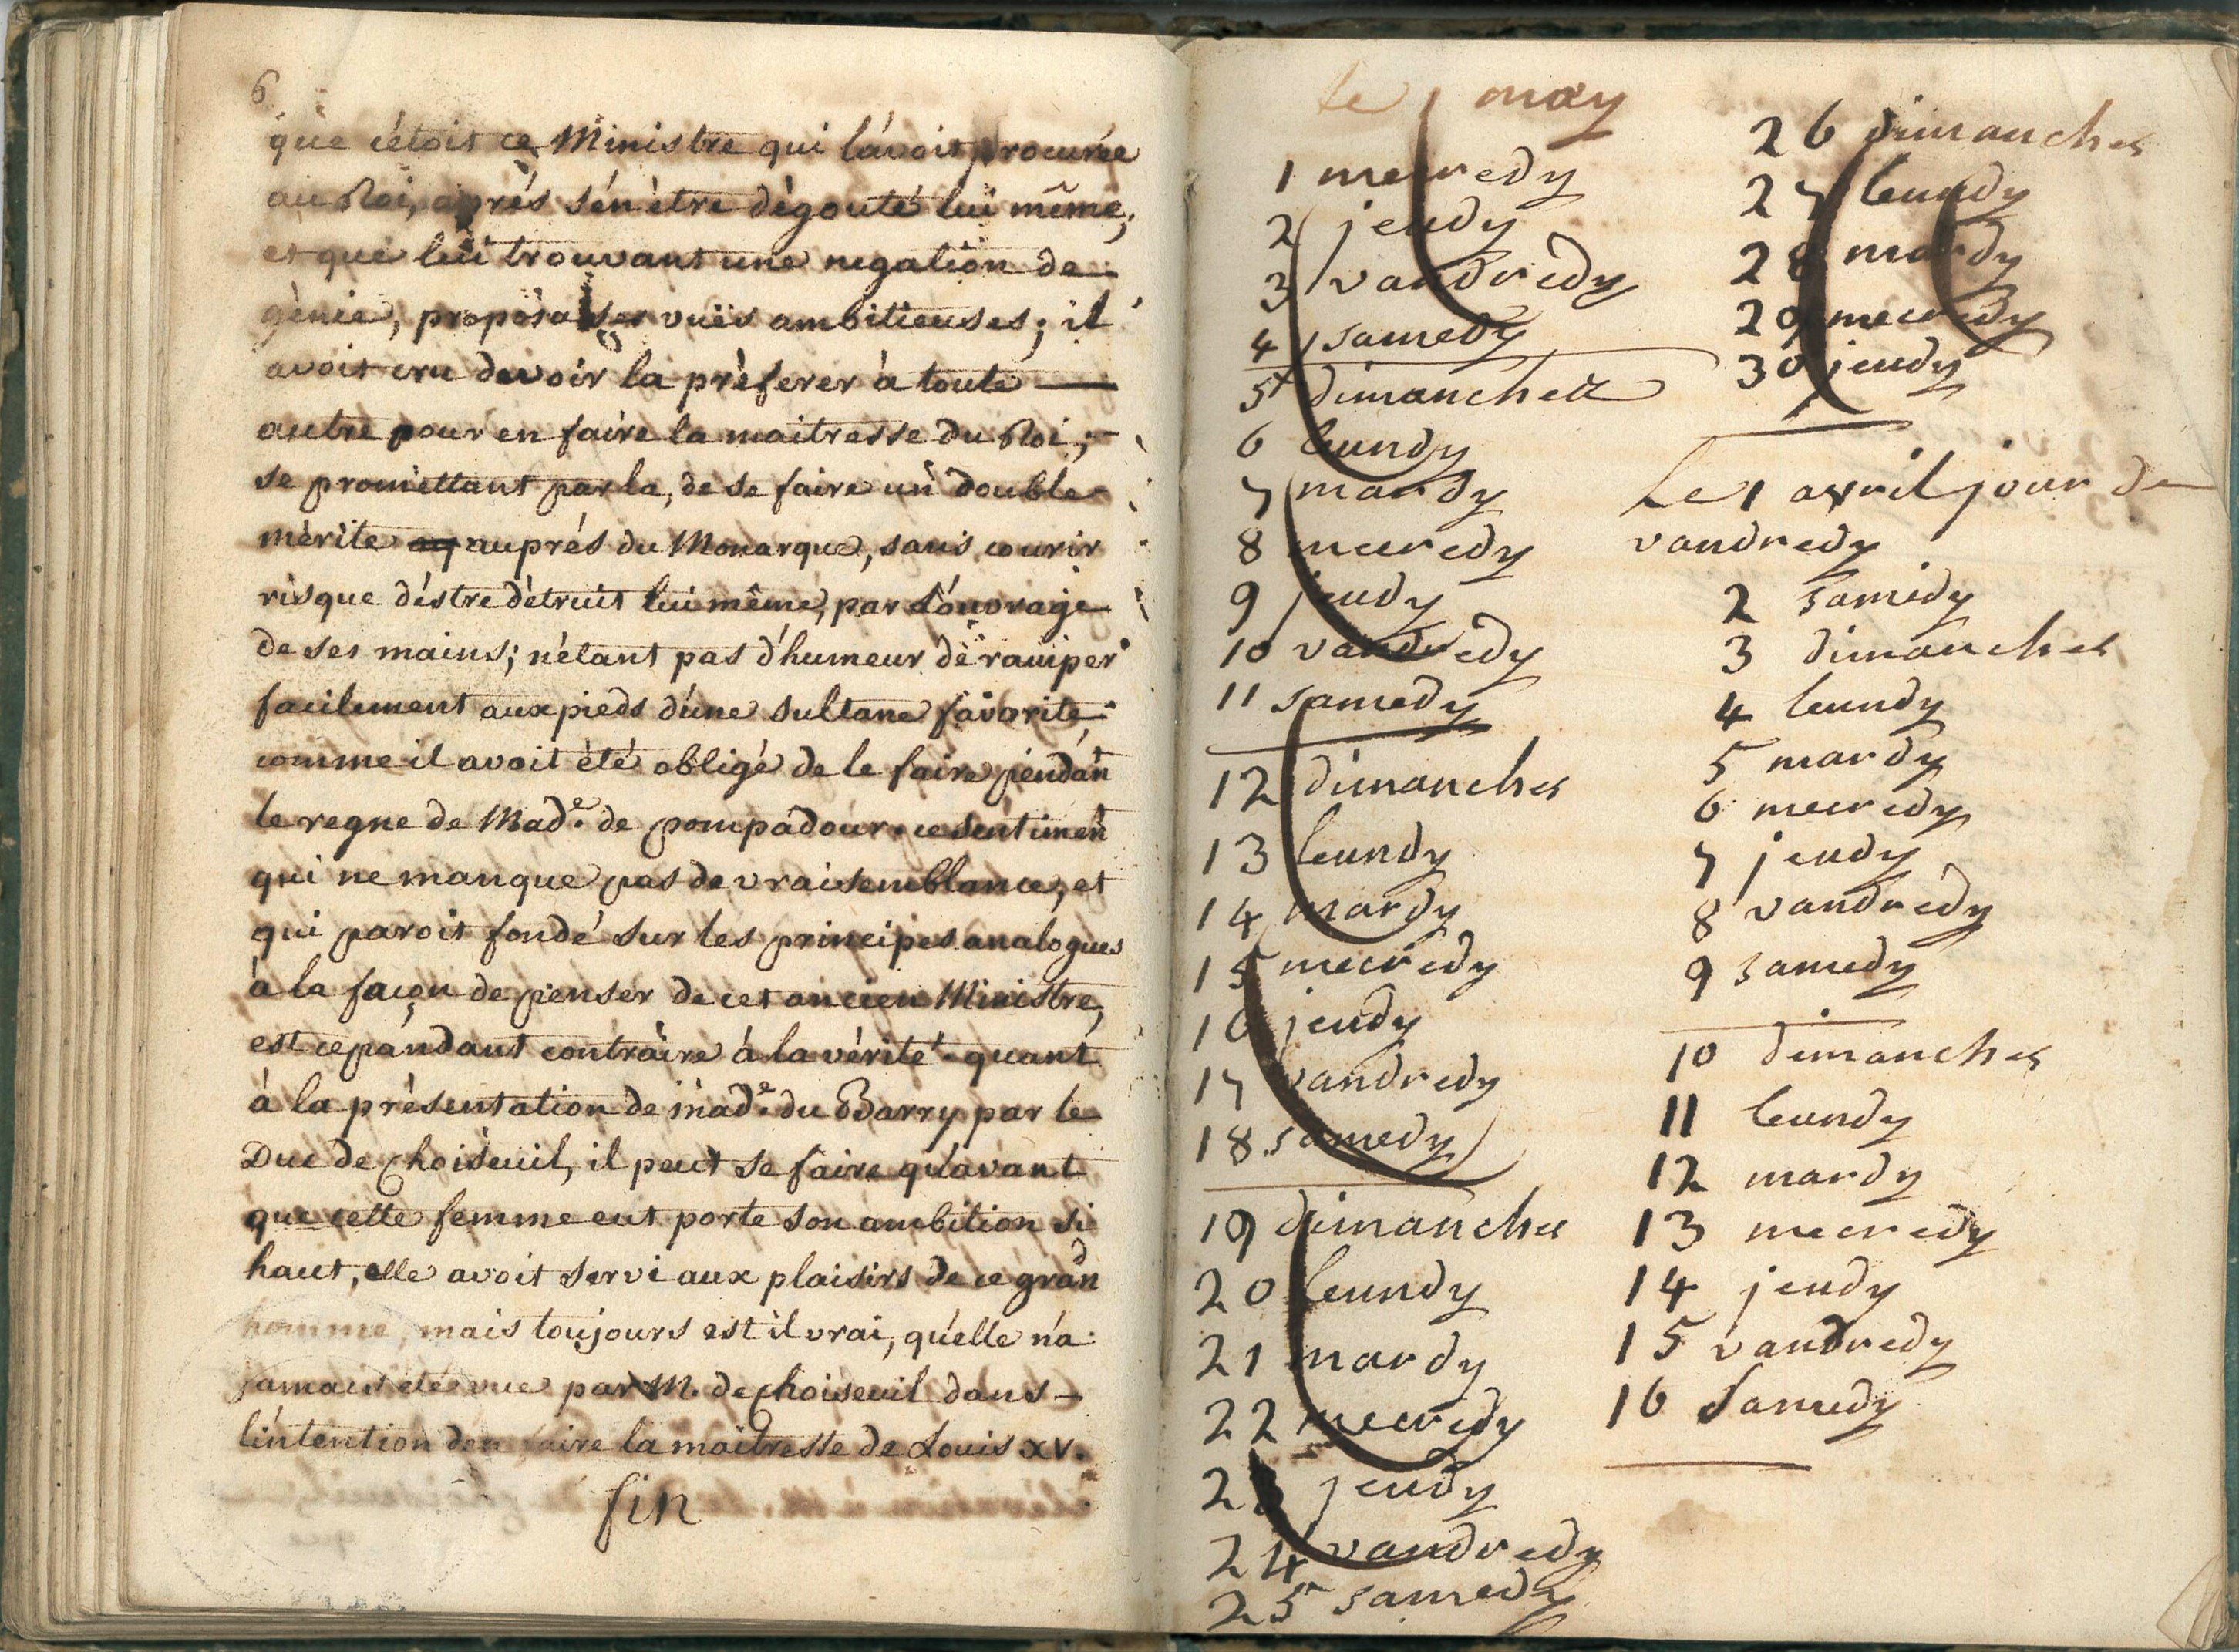 6
que c'étois ce Ministre qui l'avoit procurée
au Roi, aprés s'én étre dégouté lui même,
et que lui trouvant une negation de
génie, propôra ses vuës ambitieuses; il
avoit cru devoir la préferer à toute
autre pour en faire la maitresse du Roi;
se promettant par la, de se faire un double
mérite auprés du Monarque, sans courir
risque d'éstre détruit lui même, par L'ouvrage
de ses mains; n'étant pas d'humeur dè ramper
facilement aux pieds d'une Sultane favorite,
comme il avoit été obligé de le faire pendan
le regne de Mad.e de pompadour. ce sentimen
qui ne manque pas de vraisemblance, et
qui paroit fondé sur les principes analogues
à la façon de penser de cet ancien Ministre,
est cepandant contraire à la vérité. quant
à la présentation de mad.e du Barry par le
Duc de Choiseuil, il peut se faire qu'avant
que cette femme eut porte son ambition si
haut, elle avoit servi aux plaisirs de ce grand
homme, mais toujours est il vrai, qu'elle n'a
jamais eté vue par M. de Choiseuil dans
l'intention d'en faire la maitresse de Louis XV.
fin
le 1 may
1 mecredy
2 jeudy
3 vandredy
4 samedy
5 dimanches
6 leundy
7 mardy
8 mecredy
9 jeudy
10 vandredy
11 samedy
12 dimanches
13 leundy
14 mardy
15 mecredy
16 jeudy
17 vandredy
18 samedy
19 dimanches
20 leundy
21 mardy
22 mecredy
23 jeudy
24 vandredy
25 samedy
26 dimanches
27 leundy
28 mardy
29 mecredy
30 jeudy
Le 1 avril jour de
vandredy
2 samedy
3 dimanches
4 leundy
5 mardy
6 mecredy
7 jeudy
8 vandredy
9 samedy
10 dimanches
11 leundy
12 mardy
13 mecredy
14 jeudy
15 vandredy
16 Samedy